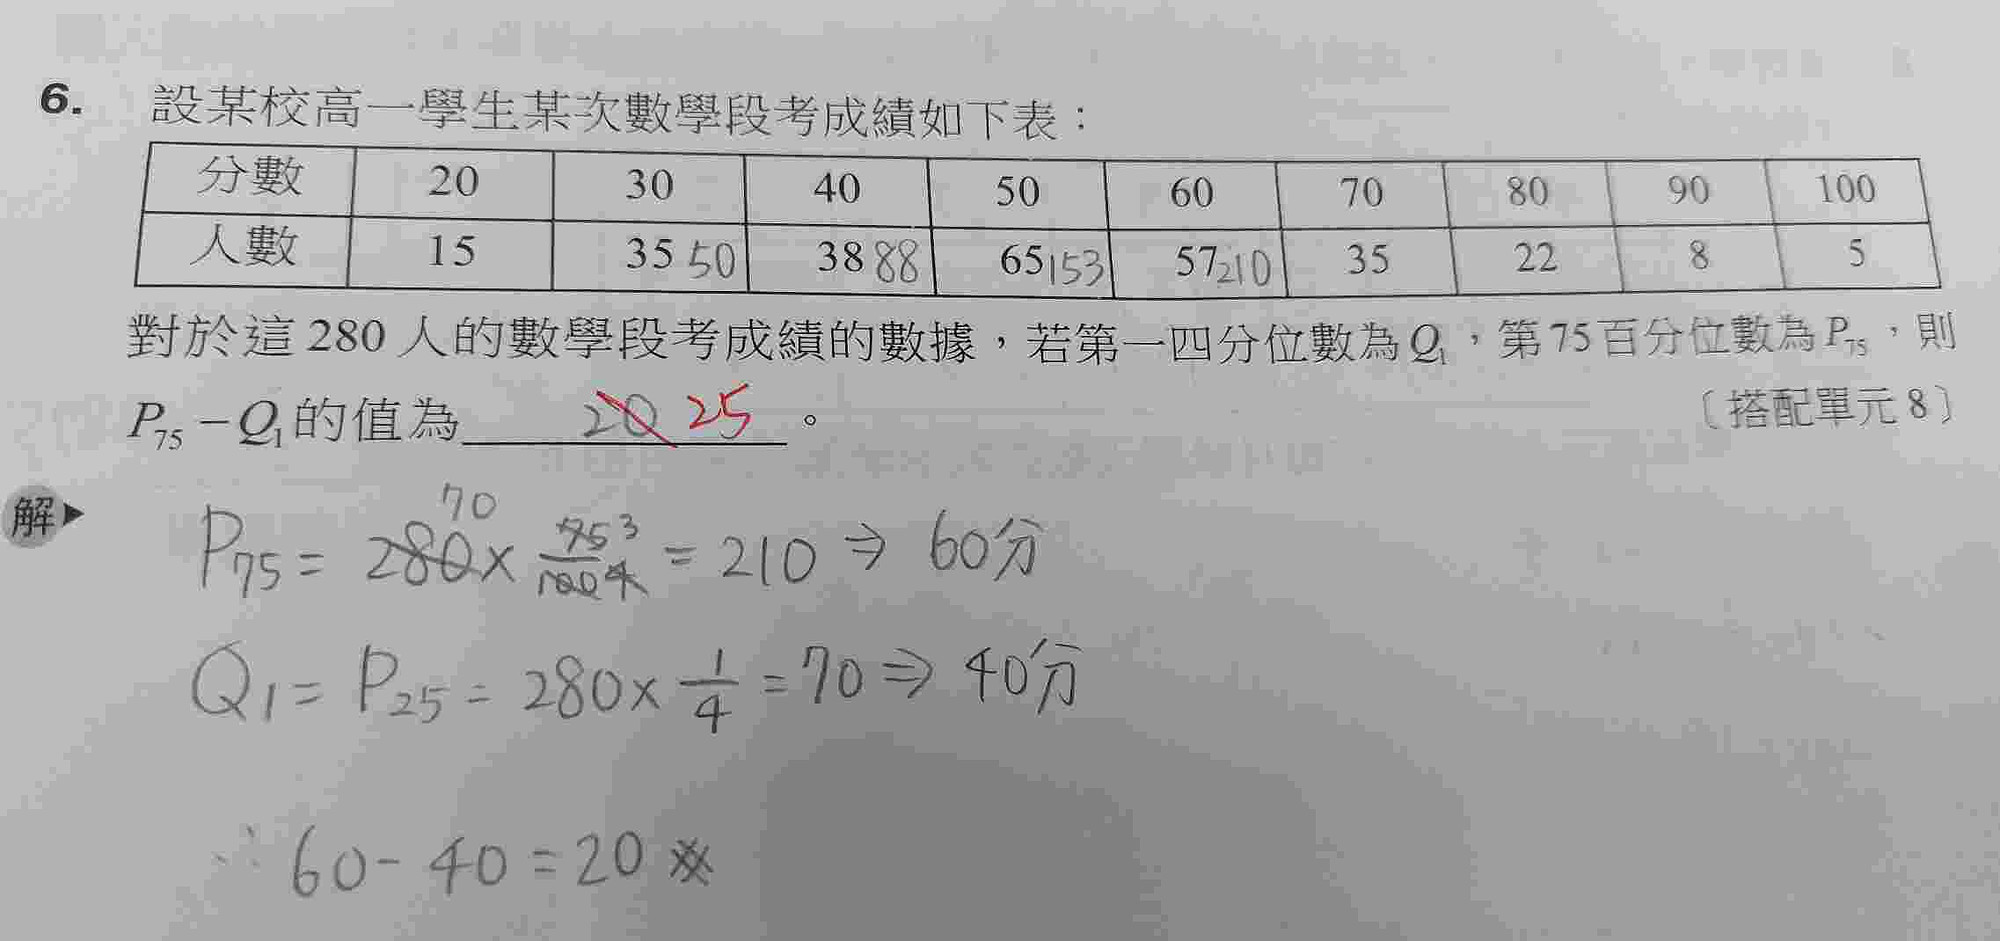 6. 設某校高一學生某次數學段考成績如下表：
分數 20 30 40 50 60 70 80 90 100
人數 15 35 50 38 88 65 153 57 210 35 22 8 5
對於這280人的數學段考成績的數據，若第一四分位數為Q₁，第75百分位數為P₇₅，則
P₇₅－Q₁的值為 20 25 。 〔搭配單元8〕
解▶ P₇₅ = 280 70 × 75 3 / 100 4 = 210 ⇒ 60分
Q₁ = P₂₅ = 280 × 1/4 = 70 ⇒ 40分
∴ 60 - 40 = 20 ※